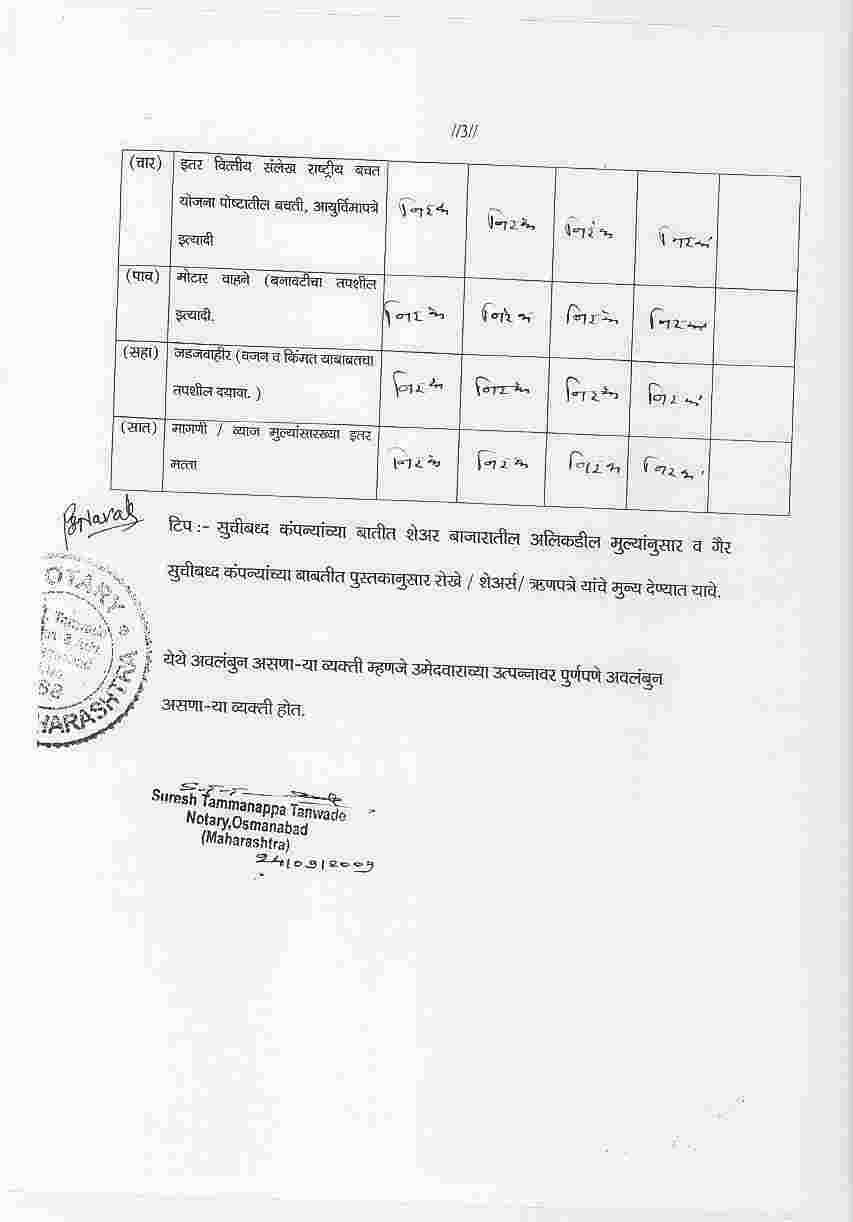 //3//
(चार) इतर वित्तीय संलेख राष्ट्रीय बचत
योजना पोष्टातील बचती, आयुर्विमापत्रे
इत्यादी
निरंक निरंक निरंक निरंक
(पाच) मोटार वाहने (बनावटीचा तपशील
इत्यादी.
निरंक निरंक निरंक निरंक
(सहा) जडजवाहीर (वजन व किंमत याबाबतचा
तपशील दयावा. )
निरंक निरंक निरंक निरंक
(सात) मागणी / व्याज मुल्यांसारख्या इतर
मत्ता
निरंक निरंक निरंक निरंक
टिप :- सुचीबध्द कंपन्यांच्या बातीत शेअर बाजारातील अलिकडील मुल्यांनुसार व गैर
सुचीबध्द कंपन्यांच्या बाबतीत पुस्तकानुसार रोखे / शेअर्स/ ऋणपत्रे यांचे मुन्य देण्यात यावे.
NOTARY
MAHARASHTRA
येथे अवलंबुन असणा-या व्यक्ती म्हणजे उमेदवाराच्या उत्पन्नावर पुर्णपणे अवलंबुन
असणा-या व्यक्ती होत.
Suresh Tammanappa Tanwade
Notary,Osmanabad
(Maharashtra)
24/09/2009